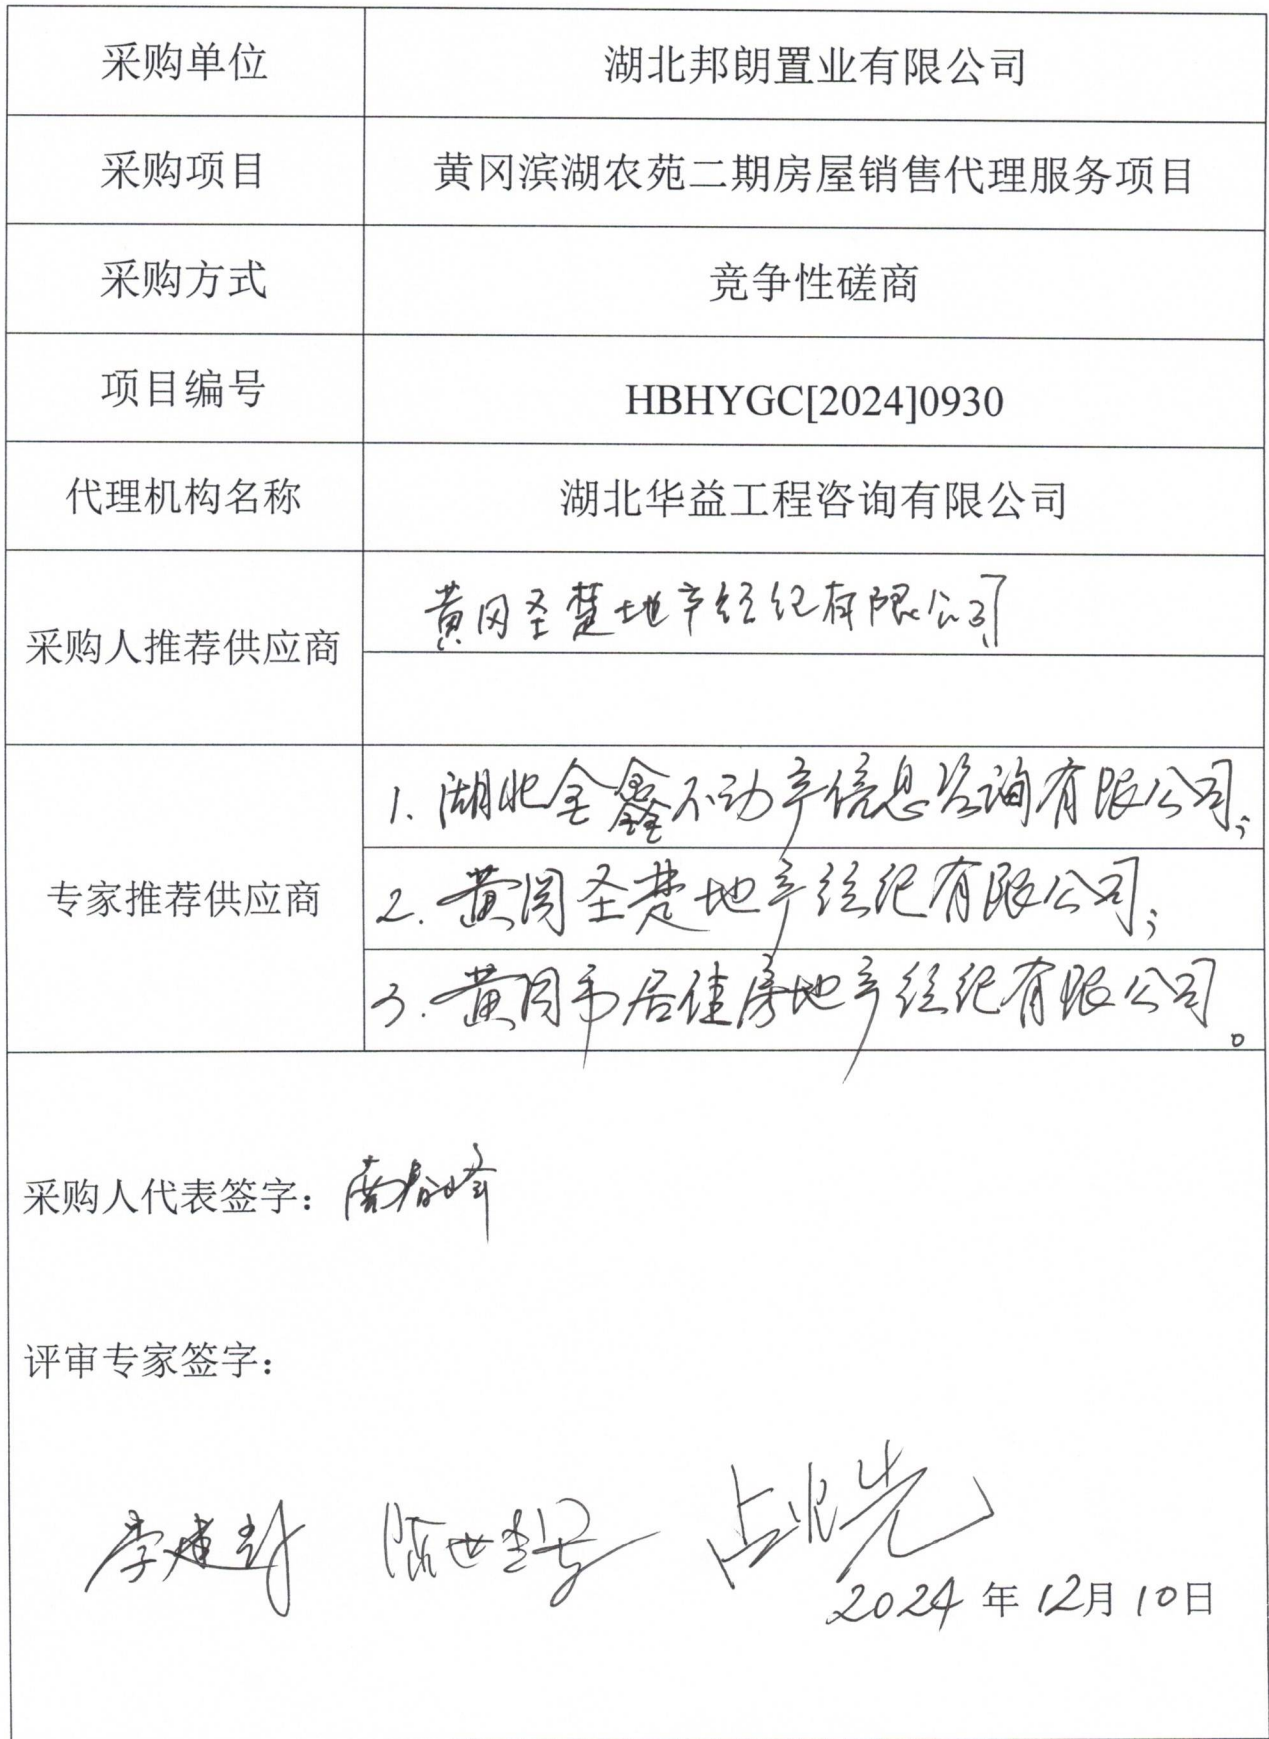 采购单位 湖北邦朗置业有限公司
采购项目 黄冈滨湖农苑二期房屋销售代理服务项目
采购方式 竞争性磋商
项目编号 HBHYGC[2024]0930
代理机构名称 湖北华益工程咨询有限公司
采购人推荐供应商 黄冈圣楚地产经纪有限公司
专家推荐供应商
1. 湖北全鑫不动产信息咨询有限公司;
2. 黄冈圣楚地产经纪有限公司;
3. 黄冈市居佳房地产经纪有限公司。
采购人代表签字:
评审专家签字:
2024 年 12月 10日